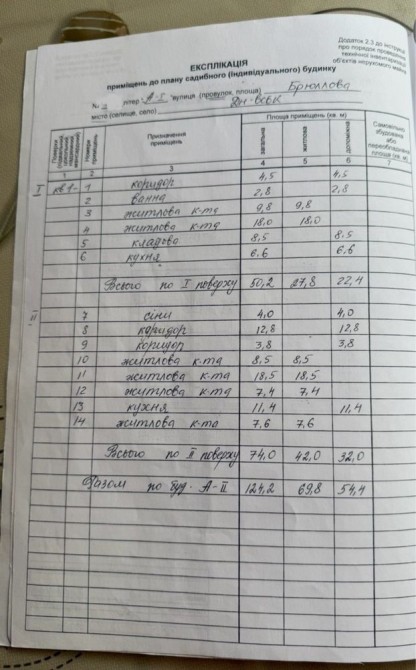 Додаток 2.3 до Інструкції
про порядок проведення
технічної інвентаризації
об'єктів нерухомого майна
ЕКСПЛІКАЦІЯ
приміщень до плану садибного (індивідуального) будинку
№ 2 літер А-I вулиця (провулок, площа) Брюллова
місто (селище, село) Дн-вськ
Номери приміщень Призначення приміщень Площа приміщень (кв. м) Самовільно збудована або переобладнана площа (кв. м)
загальна житлова допоміжна
2 3 4 5 6 7
I кв1- 1 коридор 4,5 4,5
2 ванна 2,8 2,8
3 житлова к-та 9,8 9,8
4 житлова к-та 18,0 18,0
5 кладова 8,5 8,5
6 кухня 6,6 6,6
Всього по I поверху 50,2 27,8 22,4
II 7 сіни 4,0 4,0
8 коридор 12,8 12,8
9 коридор 3,8 3,8
10 житлова к-та 8,5 8,5
11 житлова к-та 18,5 18,5
12 житлова к-та 7,4 7,4
13 кухня 11,4 11,4
14 житлова к-та 7,6 7,6
Всього по II поверху 74,0 42,0 32,0
Разом по буд. А-II 124,2 69,8 54,4